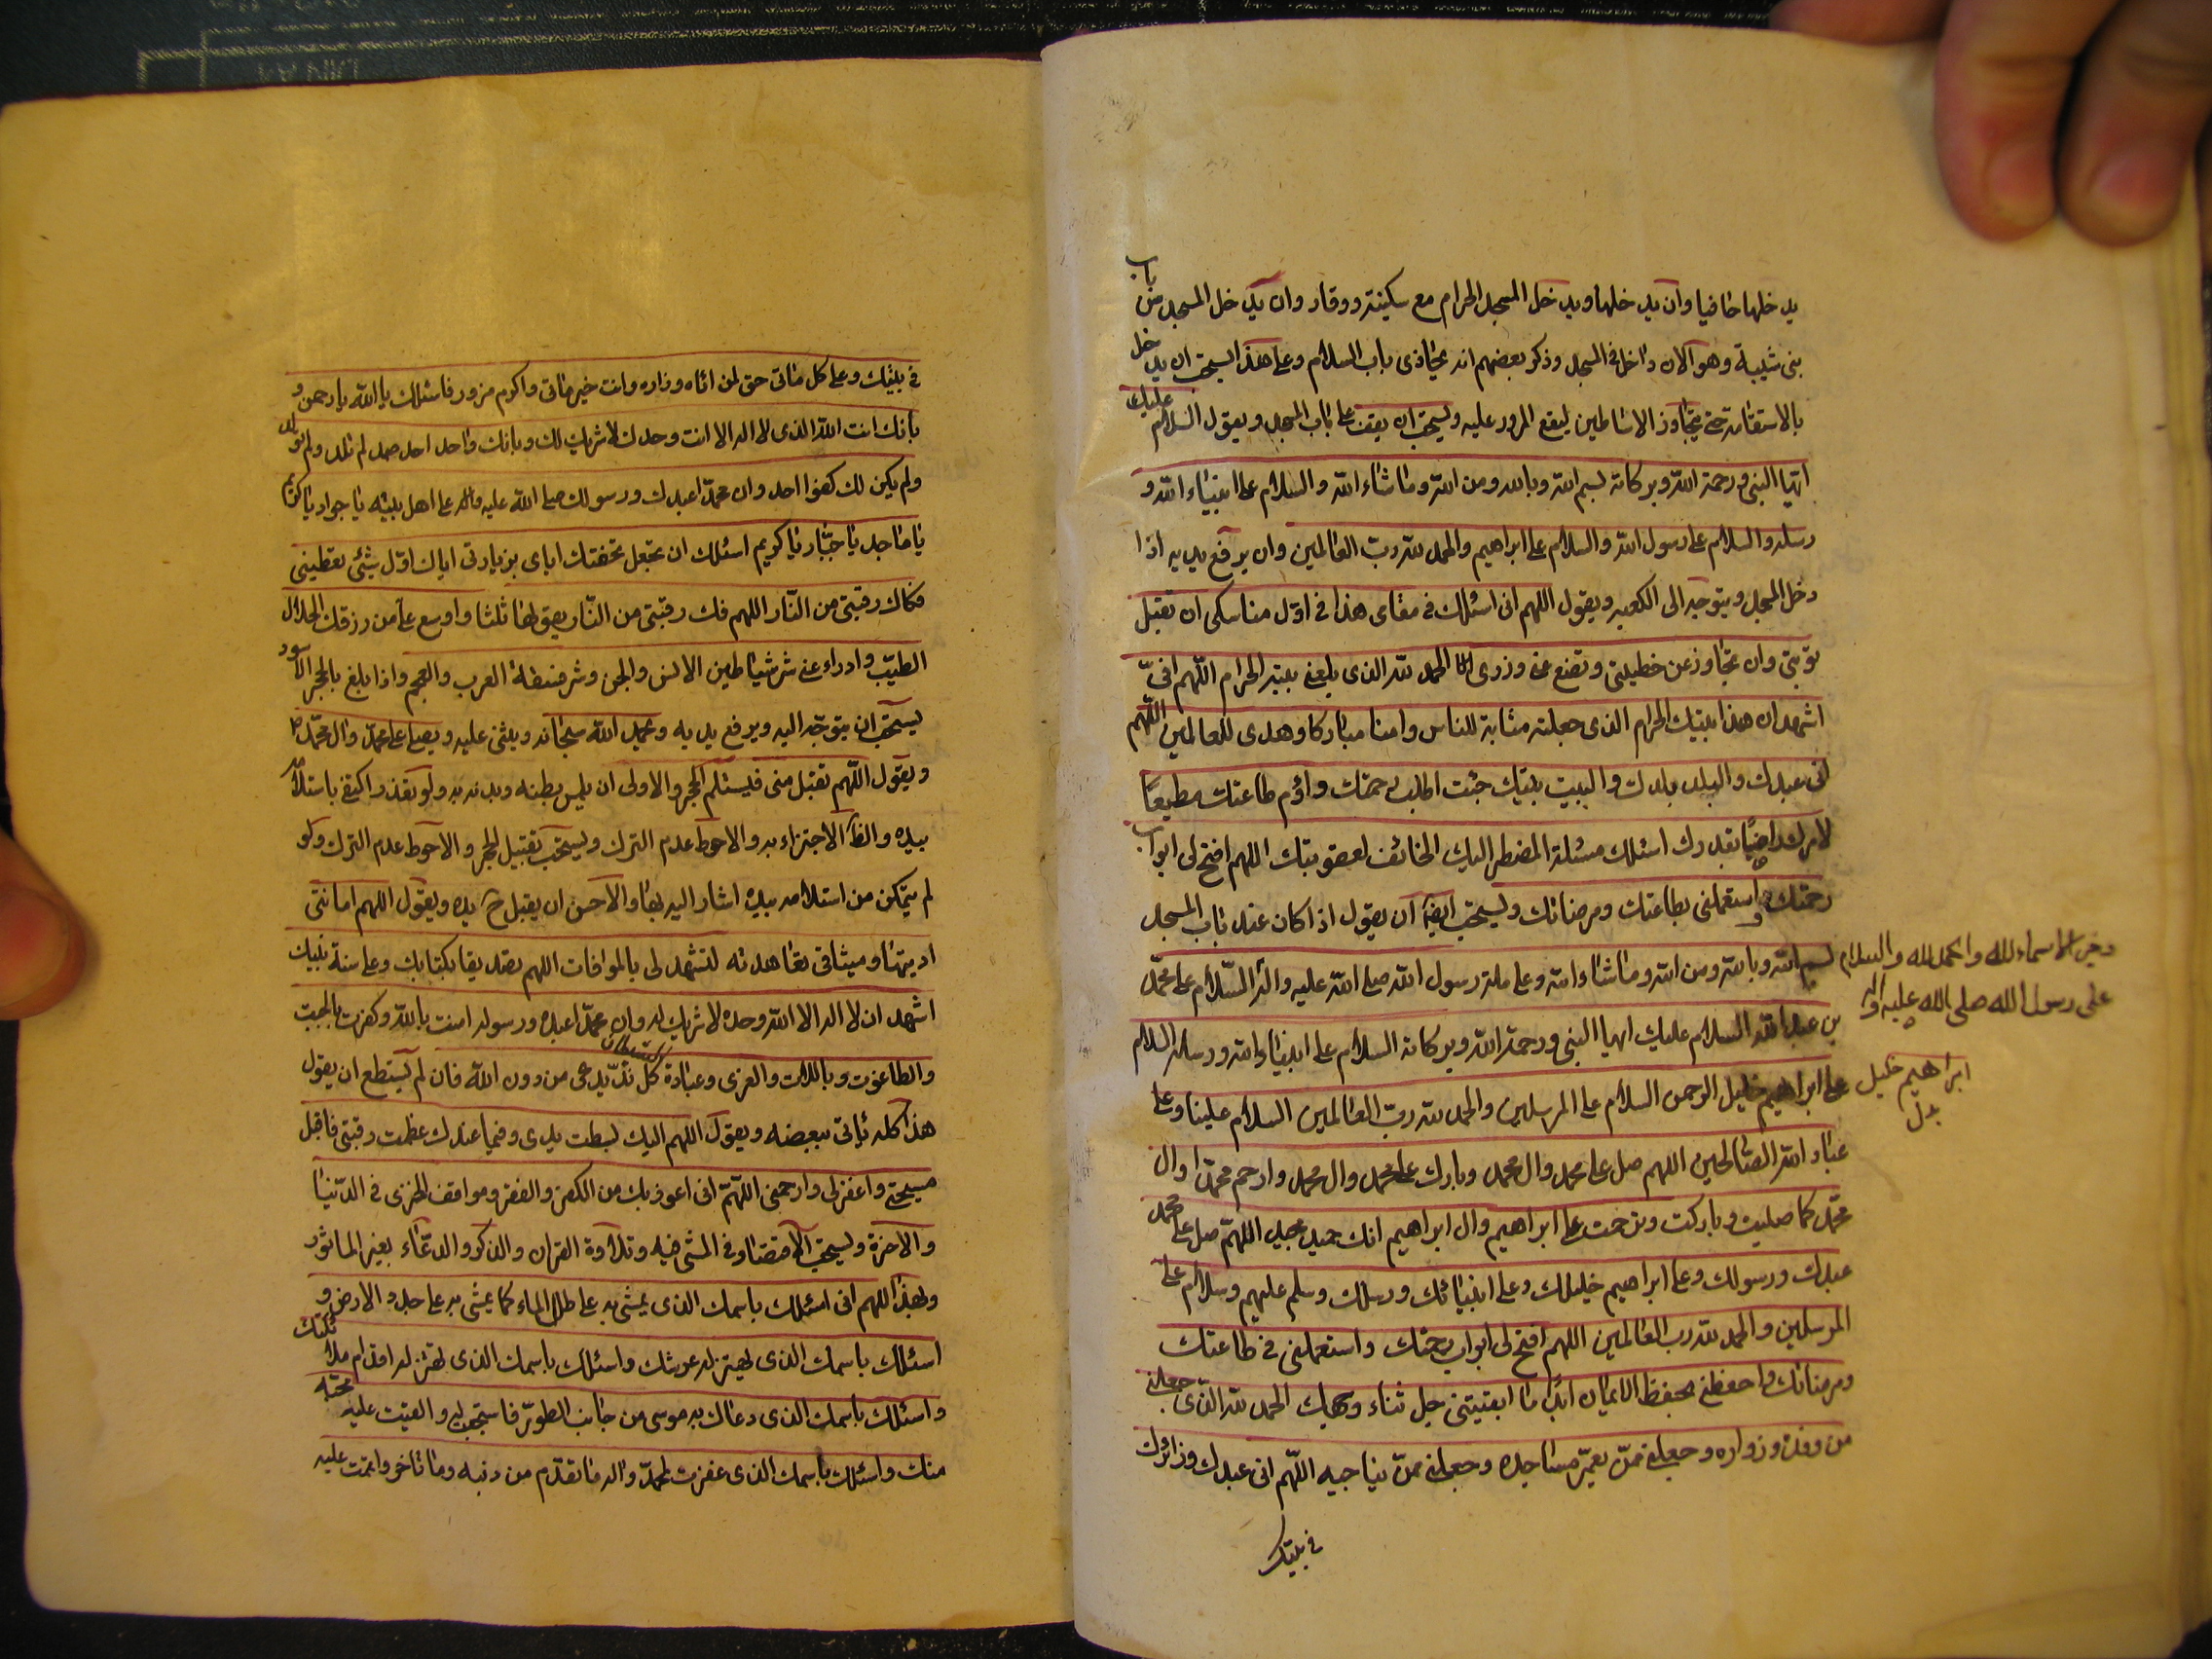 يدخلها حافيا وان يدخلها ويدخل المسجد الحرام مع سكينة ووقار وان يدخل المسجد من باب
بنى شيبة وهو الآن داخل فى المسجد وذكر بعضهم انه يحاذى باب السلام وعلى هذا يستحب ان يدخل
بالاستقامة حتى يتجاوز الاساطين ليقع المرور عليه ويستحب ان يقف على باب المسجد ويقول السلام عليك
ايها النبى ورحمة الله وبركاته بسم الله وبالله ومن الله وما شاء الله والسلام على انبياء الله و
رسله والسلام على رسول الله والسلام على ابراهيم والحمد لله رب العالمين وان يرفع يديه اذا
دخل المسجد ويتوجه الى الكعبة ويقول اللهم انى اسئلك فى مقامى هذا فى اول مناسكى ان تقبل
توبتى وان تجاوز عن خطيئتى وتضع عنى وزرى الحمد لله الذى بلغنى بيته الحرام اللهم انى
اشهد ان هذا بيتك الحرام الذى جعلته مثابة للناس وامنا مباركا وهدى للعالمين اللهم
انى عبدك والبلد بلدك والبيت بيتك جئت اطلب رحمتك واؤم طاعتك مطيعا
لامرك راضيا بقدرك اسئلك مسئلة المضطر اليك الخائف لعقوبتك اللهم افتح لى ابواب
رحمتك واستعملنى بطاعتك ومرضاتك ويستحب ايضا ان يقول اذا كان عند باب المسجد
بسم الله وبالله ومن الله وما شاء الله وعلى ملة رسول الله صلى الله عليه واله السلام على محمد
وخير الاسماء لله والحمد لله والسلام
على رسول الله صلى الله عليه واله
بن عبد الله السلام عليك ايها النبى ورحمة الله وبركاته السلام على انبياء الله ورسله السلام
على ابراهيم خليل الرحمن السلام على المرسلين والحمد لله رب العالمين السلام علينا وعلى
ابراهيم خليل
بدل
عباد الله الصالحين اللهم صل على محمد وال محمد وبارك على محمد وال محمد وارحم محمدا وال
محمد كما صليت وباركت وترحمت على ابراهيم وال ابراهيم انك حميد مجيد اللهم صل على محمد
عبدك ورسولك وعلى ابراهيم خليلك وعلى انبيائك ورسلك وسلم عليهم وسلام على
المرسلين والحمد لله رب العالمين اللهم افتح لى ابواب رحمتك واستعملنى فى طاعتك
ومرضاتك واحفظنى بحفظ الايمان ابدا ما ابقيتنى جل ثناء وجهك الحمد لله الذى جعلنى
من وفده وزواره وجعلنى ممن يعمر مساجده وجعلنى ممن يناجيه اللهم انى عبدك وزائرك
فى بيتك
فى بيتك وعلى كل ماتى حق لمن اتاه وزاره وانت خير ماتى واكرم مزور فاسئلك يا الله يا رحمن و
بانك انت الله الذى لا اله الا انت وحدك لا شريك لك وبانك واحد احد صمد لم تلد ولم تولد
ولم يكن لك كفوا احد وان محمدا عبدك ورسولك صلى الله عليه واله على اهل بيته يا جواد يا كريم
يا ماجد يا جبار يا كريم اسئلك ان تجعل تحفتك اياى بزيارتى اياك اول شيئ تعطينى
فكاك رقبتى من النار اللهم فك رقبتى من النار يقولها ثلثا واوسع على من رزقك الحلال
الطيب وادراء عنى شر شياطين الانس والجن وشر فسقة العرب والعجم واذا بلغ بالحجر الاسود
يستحب ان يتوجه اليه ويرفع يديه ويحمد الله سبحانه ويثنى عليه ويصلى على محمد وال محمد ص
ويقول اللهم تقبل منى فليستلم الحجر والاولى ان يلمس بطنه وبدنه به ولو تعذر اكتفى باستلامه
بيده والظ الاجتزاء به والاحوط عدم الترك ويستحب تقبيل الحجر والاحوط عدم الترك ولو
لم يتمكن من استلامه بيده اشار اليه بها والاحسن ان يقبل ح يده ويقول اللهم امانتى
اديتها وميثاقى تعاهدته لتشهد لى بالموافات اللهم تصديقا بكتابك وعلى سنة نبيك
اشهد ان لا اله الا الله وحده لا شريك له وان محمدا عبده ورسوله امنت بالله وكفرت بالجبت
والطاغوت وباللات والعزى وعبادة الشيطان وعبادة كل ند يدعى من دون الله فان لم يستطع ان يقول
هذا كله ياتى ببعضه ويقول اللهم اليك بسطت يدى وفيما عندك عظمت رغبتى فاقبل
مسيحتى واغفر لى وارحمنى اللهم انى اعوذ بك من الكفر والفقر ومواقف الخزى فى الدنيا
والاخرة ويستحب الاقتصاد فى المشى فيه وتلاوة القران والذكر والدعاء بغير الماثور
وبهذا اللهم انى اسئلك باسمك الذى يمشى به على طلل الماء كما يمشى به على جدد الارض و
اسئلك باسمك الذى يهتز له عرشك واسئلك باسمك الذى تهتز له اقدام ملائكتك
واسئلك باسمك الذى دعاك به موسى من جانب الطور فاستجبت له والقيت عليه محبة
منك واسئلك باسمك الذى غفرت لمحمد واله ما تقدم من ذنبه وما تاخر واتممت عليه